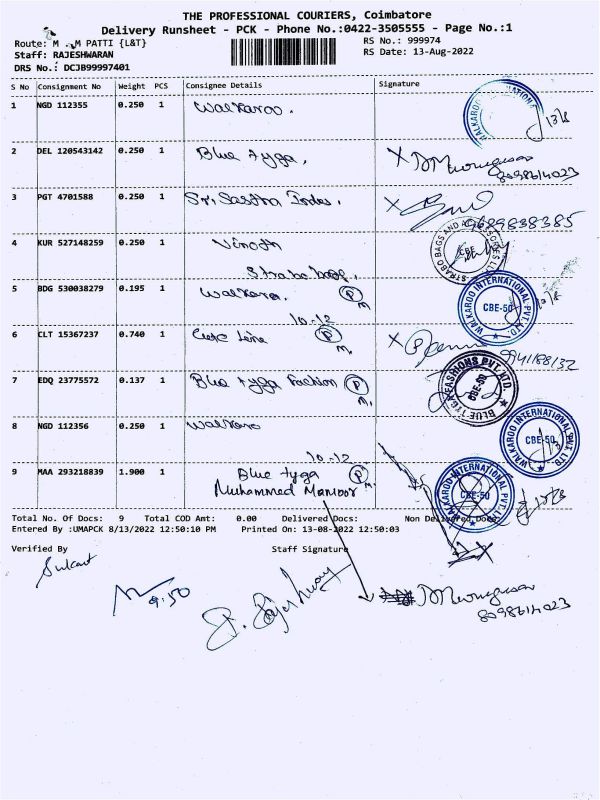 THE PROFESSIONAL COURIERS, Coimbatore
Delivery Runsheet - PCK - Phone No.:0422-3505555 - Page No.:1
Route: M M PATTI {L&T} RS No.: 999974
Staff: RAJESHWARAN RS Date: 13-Aug-2022
DRS No.: DCJB99997401
S No Consignment No Weight PCS Consignee Details Signature
1 NGD 112355 0.250 1 Walkaroo.
2 DEL 120543142 0.250 1 Blue tyga,
8098614023
3 PGT 4701588 0.250 1 Sri. Sastha
9689838385
4 KUR 527148259 0.250 1 Vinoth
Strabo bags.
STRABO BAGS AND ACCESSORIES
CBE
5 BDG 530038279 0.195 1 Walkaroo. P
WALKAROO INTERNATIONAL PVT. LTD. CBE-50
10-12
6 CLT 15367237 0.740 1 Line P M.
9941188132
7 EDQ 23775572 0.137 1 Blue tyga Fashion P M.
BLUE TYGA FASHIONS PVT. LTD. CBE-50
8 NGD 112356 0.250 1 Walkaroo
WALKAROO INTERNATIONAL PVT LTD CBE-50
10-12
9 MAA 293218839 1.900 1 Blue tyga P M.
Muhammed Mansoor
WALKAROO INTERNATIONAL PVT. LTD. CBE-50
Total No. Of Docs: 9 Total COD Amt: 0.00 Delivered Docs: Non Delivered Docs:
Entered By :UMAPCK 8/13/2022 12:50:10 PM Printed On: 13-08-2022 12:50:03
Verified By Staff Signature
9.50
8098614023